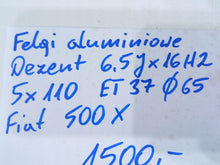 Felgi aluminiowe
Dezent 6.5Jx16H2
5x110 ET 37 Ø65
Fiat 500X
1500,-